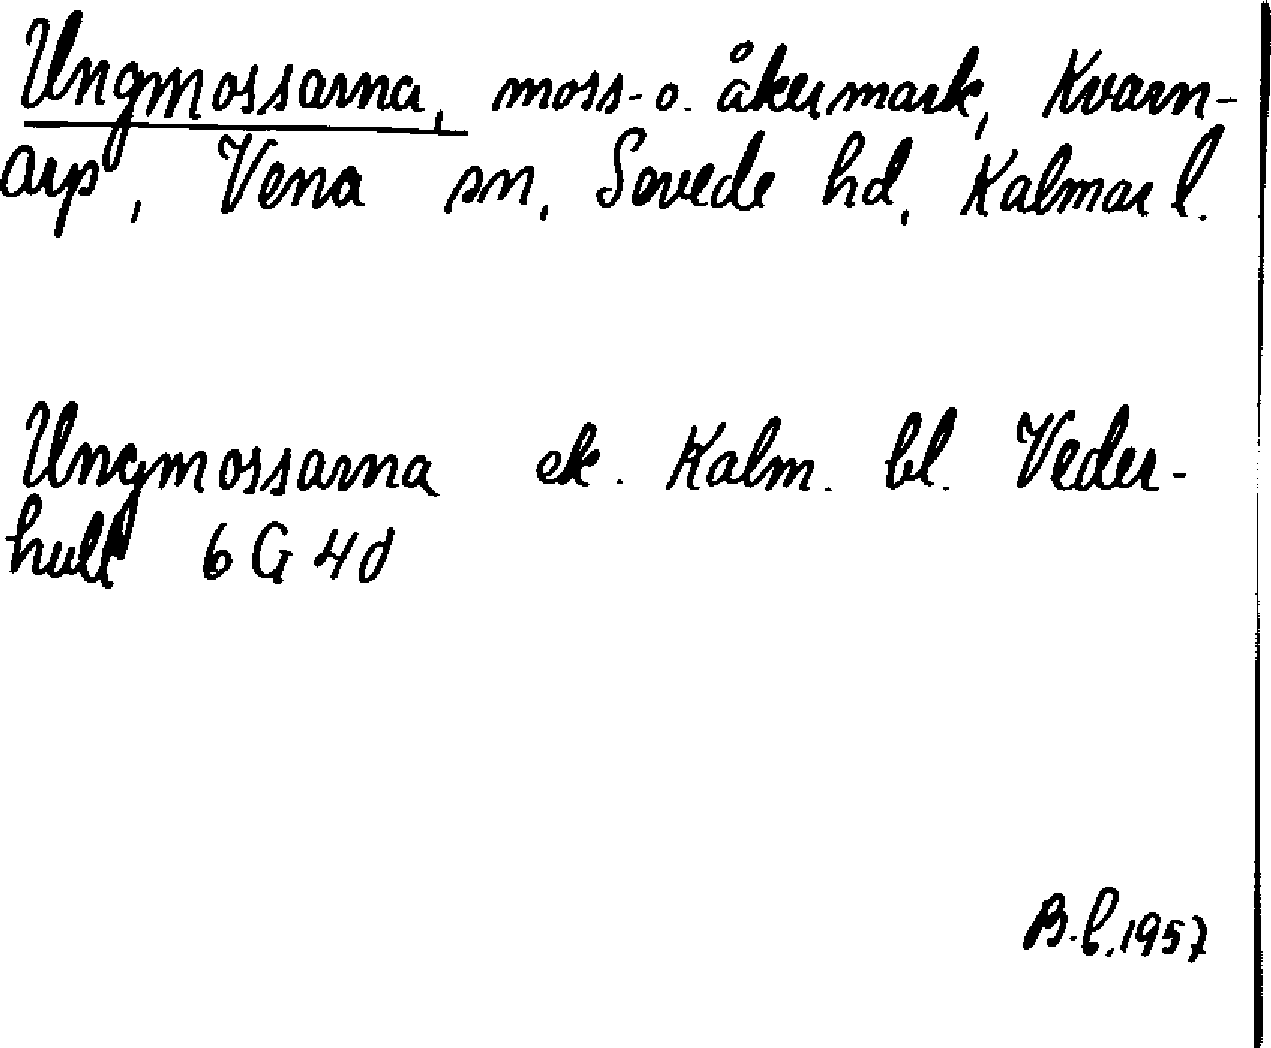 Ungmossarna, moss- o. åkermark, Kvarn-
arp, Vena sn, Sevede hd, Kalmar l.
Ungmossarna ek. Kalm. bl. Veder-
hult 6 G 4d
B.l. 1957